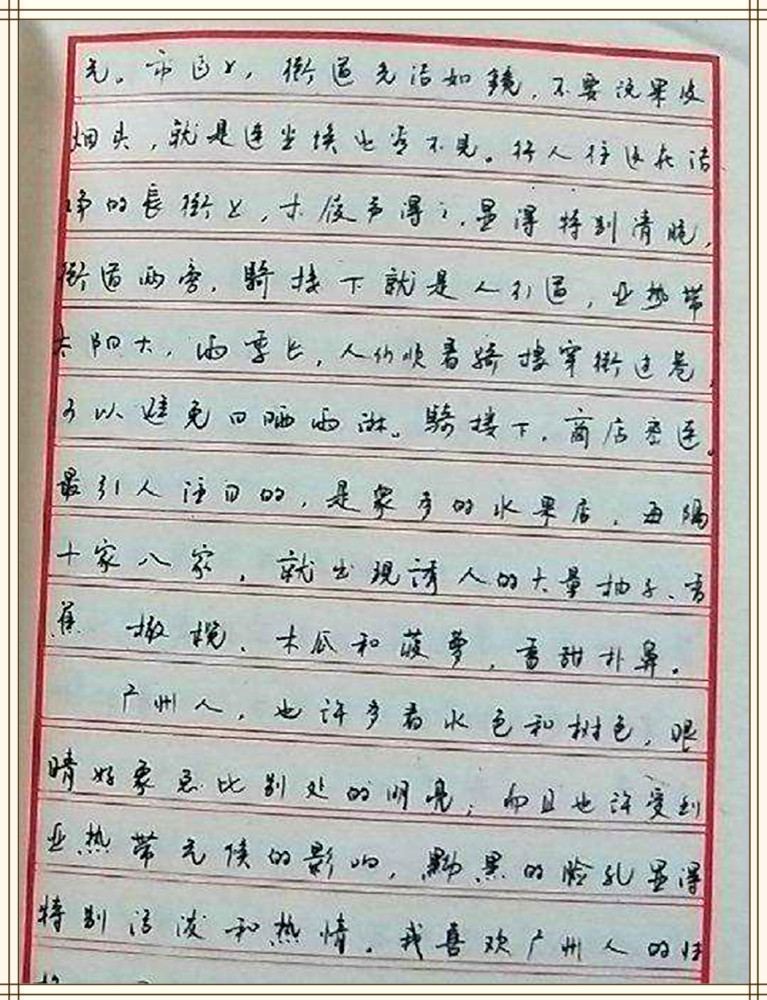 气。市区里，街道光洁如镜，不要说果皮
烟头，就是连尘埃也看不见。行人往返在洁
净的長街上，木屐声得得，显得特别清脆，
街道两旁，騎楼下就是人行道，亚热带
太阳大，雨季长，人们顺着騎楼穿街过巷，
可以避免日晒雨淋。騎楼下，商店密连。
最引人注目的，是众多的水果店，每隔
十家八家，就出现誘人的大量柚子、香
蕉、橄榄、木瓜和菠萝，香甜扑鼻。
广州人，也许多看水色和树色，眼
睛好象总比别处的明亮；而且也许受到
亚热带气候的影响，黝黑的脸孔显得
特别活泼和热情。我喜欢广州人的性